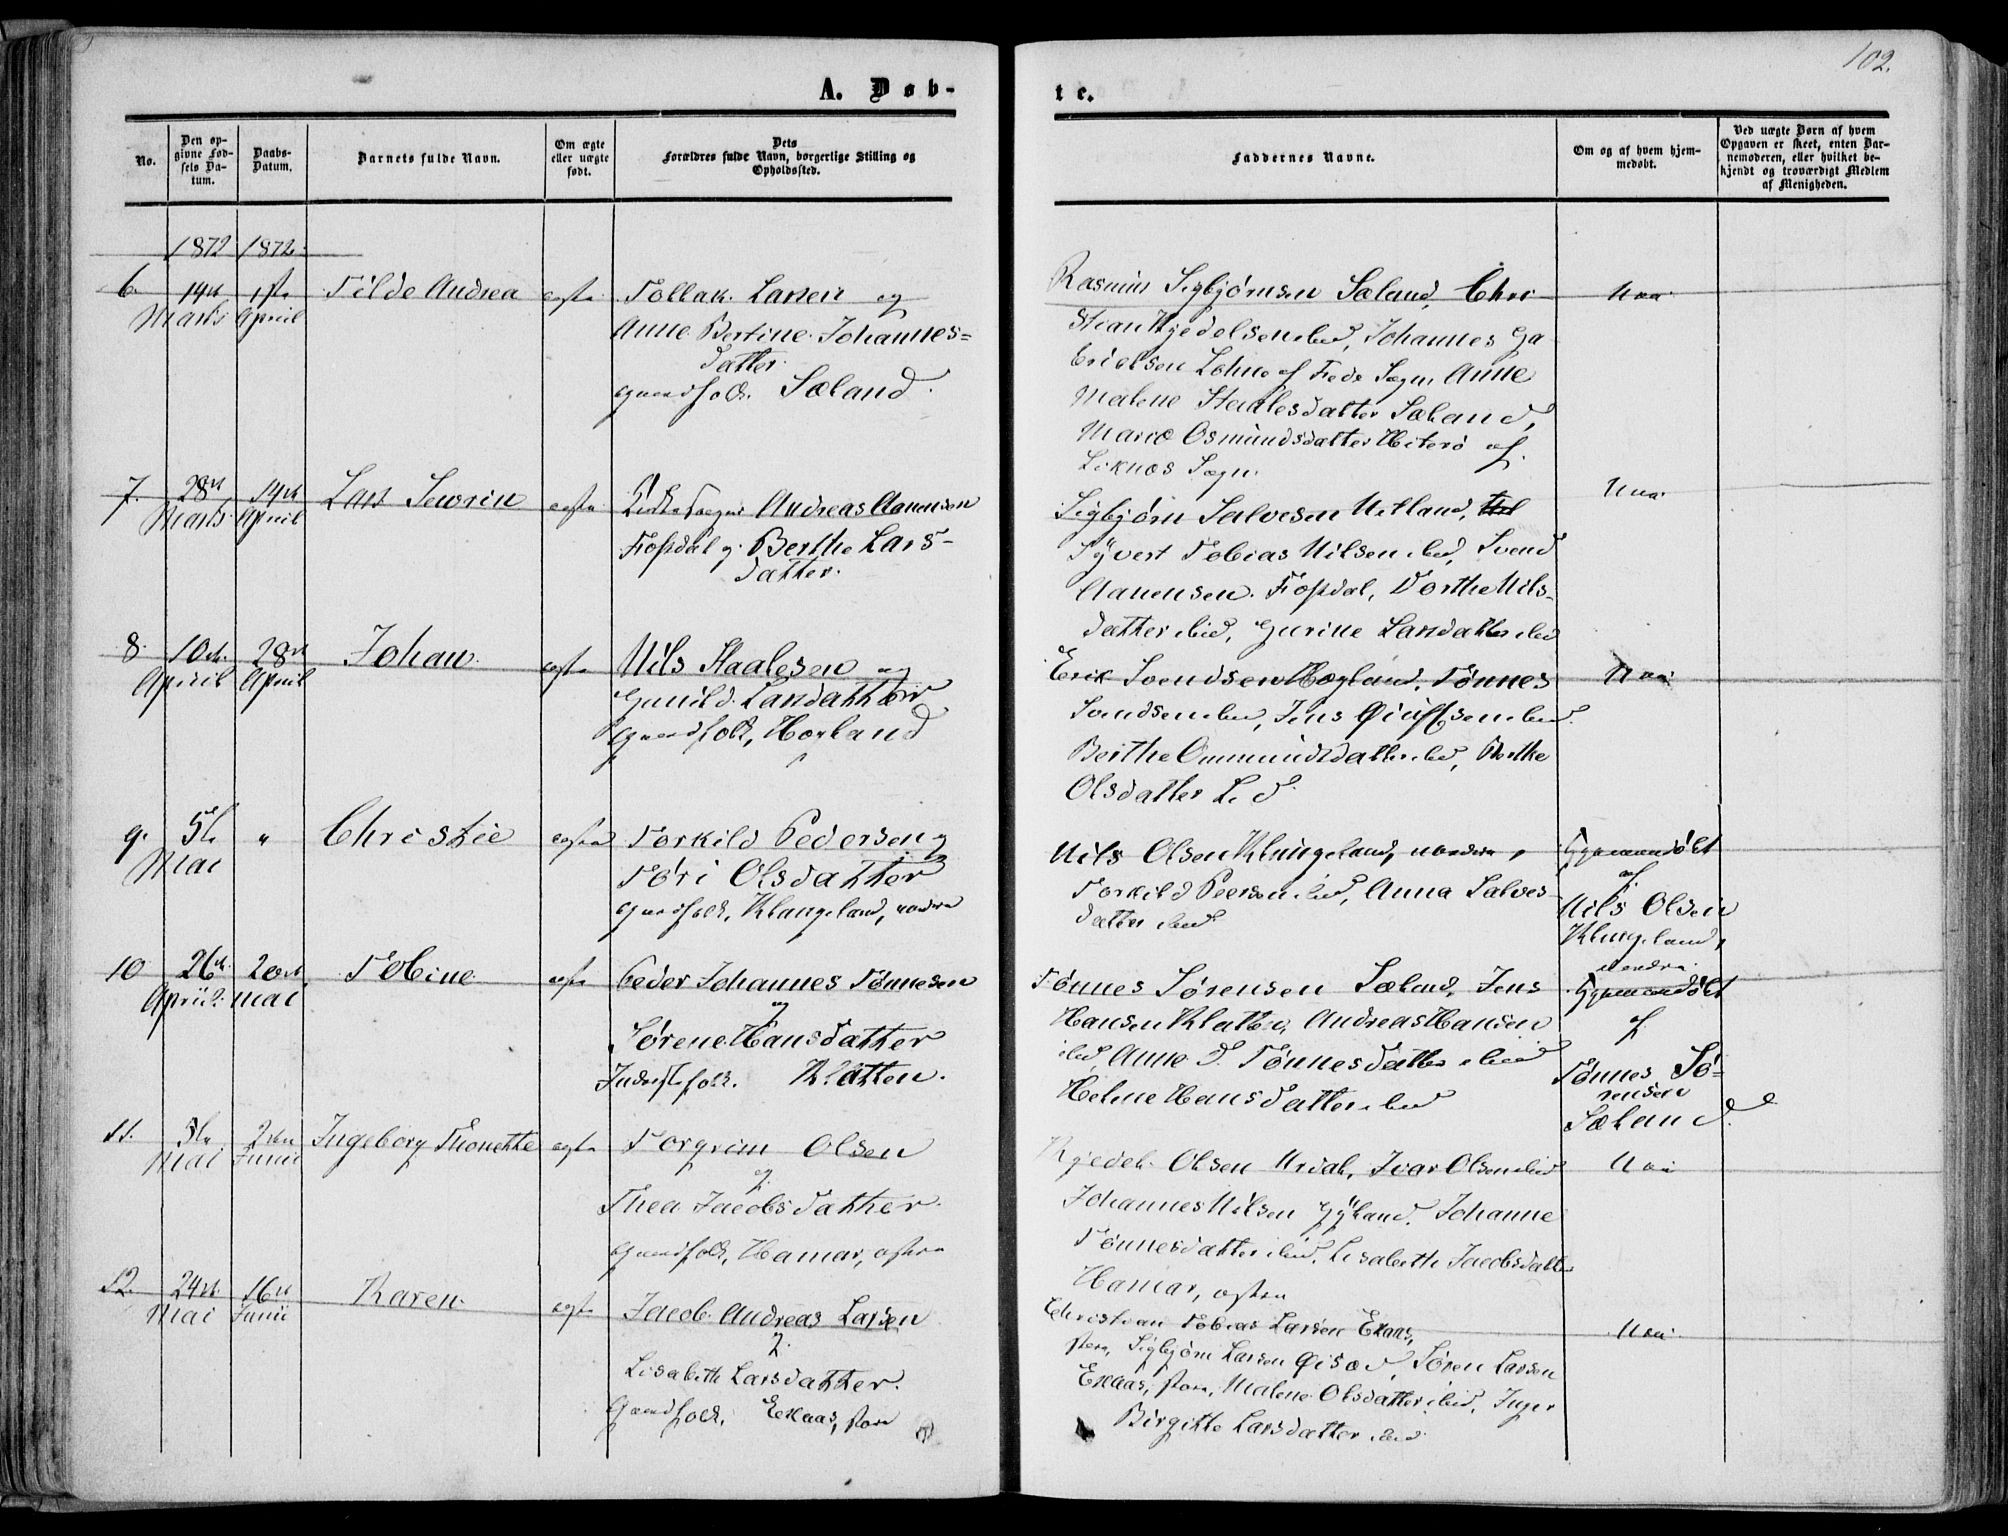 102.
A. Døb-
te.
No.
Den op-
givne Fød-
sels Da-
tum.
Daabs-
Datum.
Barnets fulde Navn.
Om ægte
eller uægte
født.
Dets
Forældres fulde Navn, borgerlige Stilling og
Opholdssted.
Faddernes Navne.
Om og af hvem hjem-
medøbt.
Ved uægte Børn af hvem
Opgaven er skeet, enten Bar-
nemoderen, eller hvilket be-
kjendt og troværdigt Medlem
af Menigheden.
1872 1872.
6. 14de 1ste Tilde Andrea ægte Tollak Larsen og
Marts April
Anne Bertine Johannes=
datter
Gaardfolk. Sæland.
Rasmus Sigbjørnsen Sæland, Chri-
stian Kjedelsen ibid, Johannes Ga
brielsen Lohne af Fede Sogn, Anne
Malene Staalesdatter Sæland,
Marie Osmundsdatter Hiterø af
Liknæs Sogn.
Nei
7. 28de 14de Lars Sewrin ægte Andreas Aanensen
Marts April
Fossdal og Berthe Lars-
datter.
Sigbjørn Salvesen Netland,
Syvert Tobias Nilsen ibid, Svend
Aanensen Fossdal, Dorthe Nils-
datter ibid, Gurine Larsdatter ibid
Nei
8. 10de 28de Johan ægte Nils Staalesen og
April April
Gunild Larsdatter
Gaardfolk, Hægland
Erik Svendsen Hægland, Tønnes
Svendsen ibid, Jens ibid.
Berthe Ommundsdatter ibid, Berthe
Olsdatter
Nei
9. 5te " Christie ægte Torkild Pedersen og
Mai
Tøri Olsdatter
Gaardfolk, Klungeland, nordre
Nils Olsen Klungeland, nordre,
Torkild Peersen ibid, Anna Salves-
datter ibid
Hjemmedøbt
af
Nils Olsen
Klungeland,
nordre.
10 26de 20de Tobine ægte Peder Johannes Tønnesen
April Mai
og
Sørene Hansdatter
Inderstfolk. Klatten.
Tønnes Sørensen Sæland, Jens
Hansen Klatten, Andreas Hansen
ibid, Anne T. Tønnesdatter ibid
Helene Hansdatter ibid
Hjemmedøbt
af
Tønnes Sø=
rensen
Sæland.
11. 5te 2den Ingeborg Thonette ægte Torgrim Olsen
Mai Junii
og
Thea Jacobsdatter.
Gaardfolk, Hamar, østre
Kjedel Olsen Urdal, Ivar Olsen ibid
Johannes Nilsen Gyland, Johanne
Tønnesdatter ibid, Lisabeth Jacobsdatter
Hamar, østre
Nei
12. 24de 16de Karen ægte Jacob Andreas Larsen
Mai Junii
og
Lisabeth Larsdatter.
Gaardfolk, Eekaas, store
Christian Tobias Larsen Ekaas,
store, Sigbjørn Larsen Øisæd, Søren Larsen
Ekaas, store, Malene Olsdatter ibid, Inger
Birgitte Larsdatter ibid
Nei